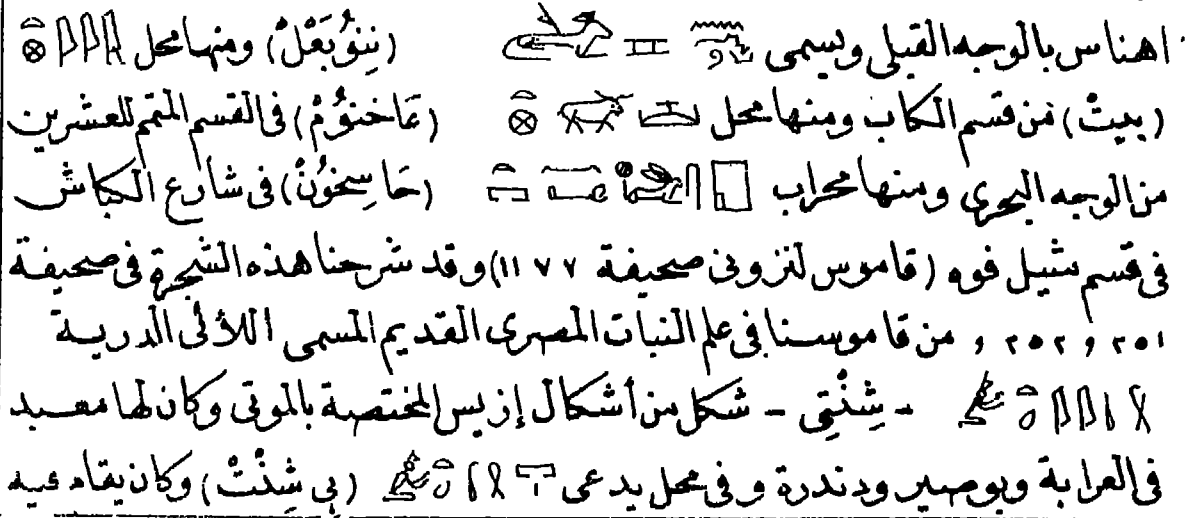 اهناس بالوجه القبلى ويسمى (نِننوُبَعْلْ) ومنها محل
(بيتْ) فى قسم الكاب ومنها محل (عَاخنوُمْ) فى القسم المتمم للعشرين
من الوجه البحرى ومنها محراب (حَاسِخوُنْ) فى شارع الكباش
فى قسم شيل فوه (قاموس لنزونى صحيفة ١١٧٧) وقد شرحنا هذه الشجرة فى صحيفة
٢٥١ و ٢٥٢ و من قاموسنا فى علم النبات المصرى القديم المسمى اللألئ الدرية
- شِنْتِى - شكل من أشكال إزيس المختصة بالموتى وكان لها معبد
فى العرابة وبوصير ودندرة وفى محل يدعى (بِى شِنْتْ) وكان يقام فيه